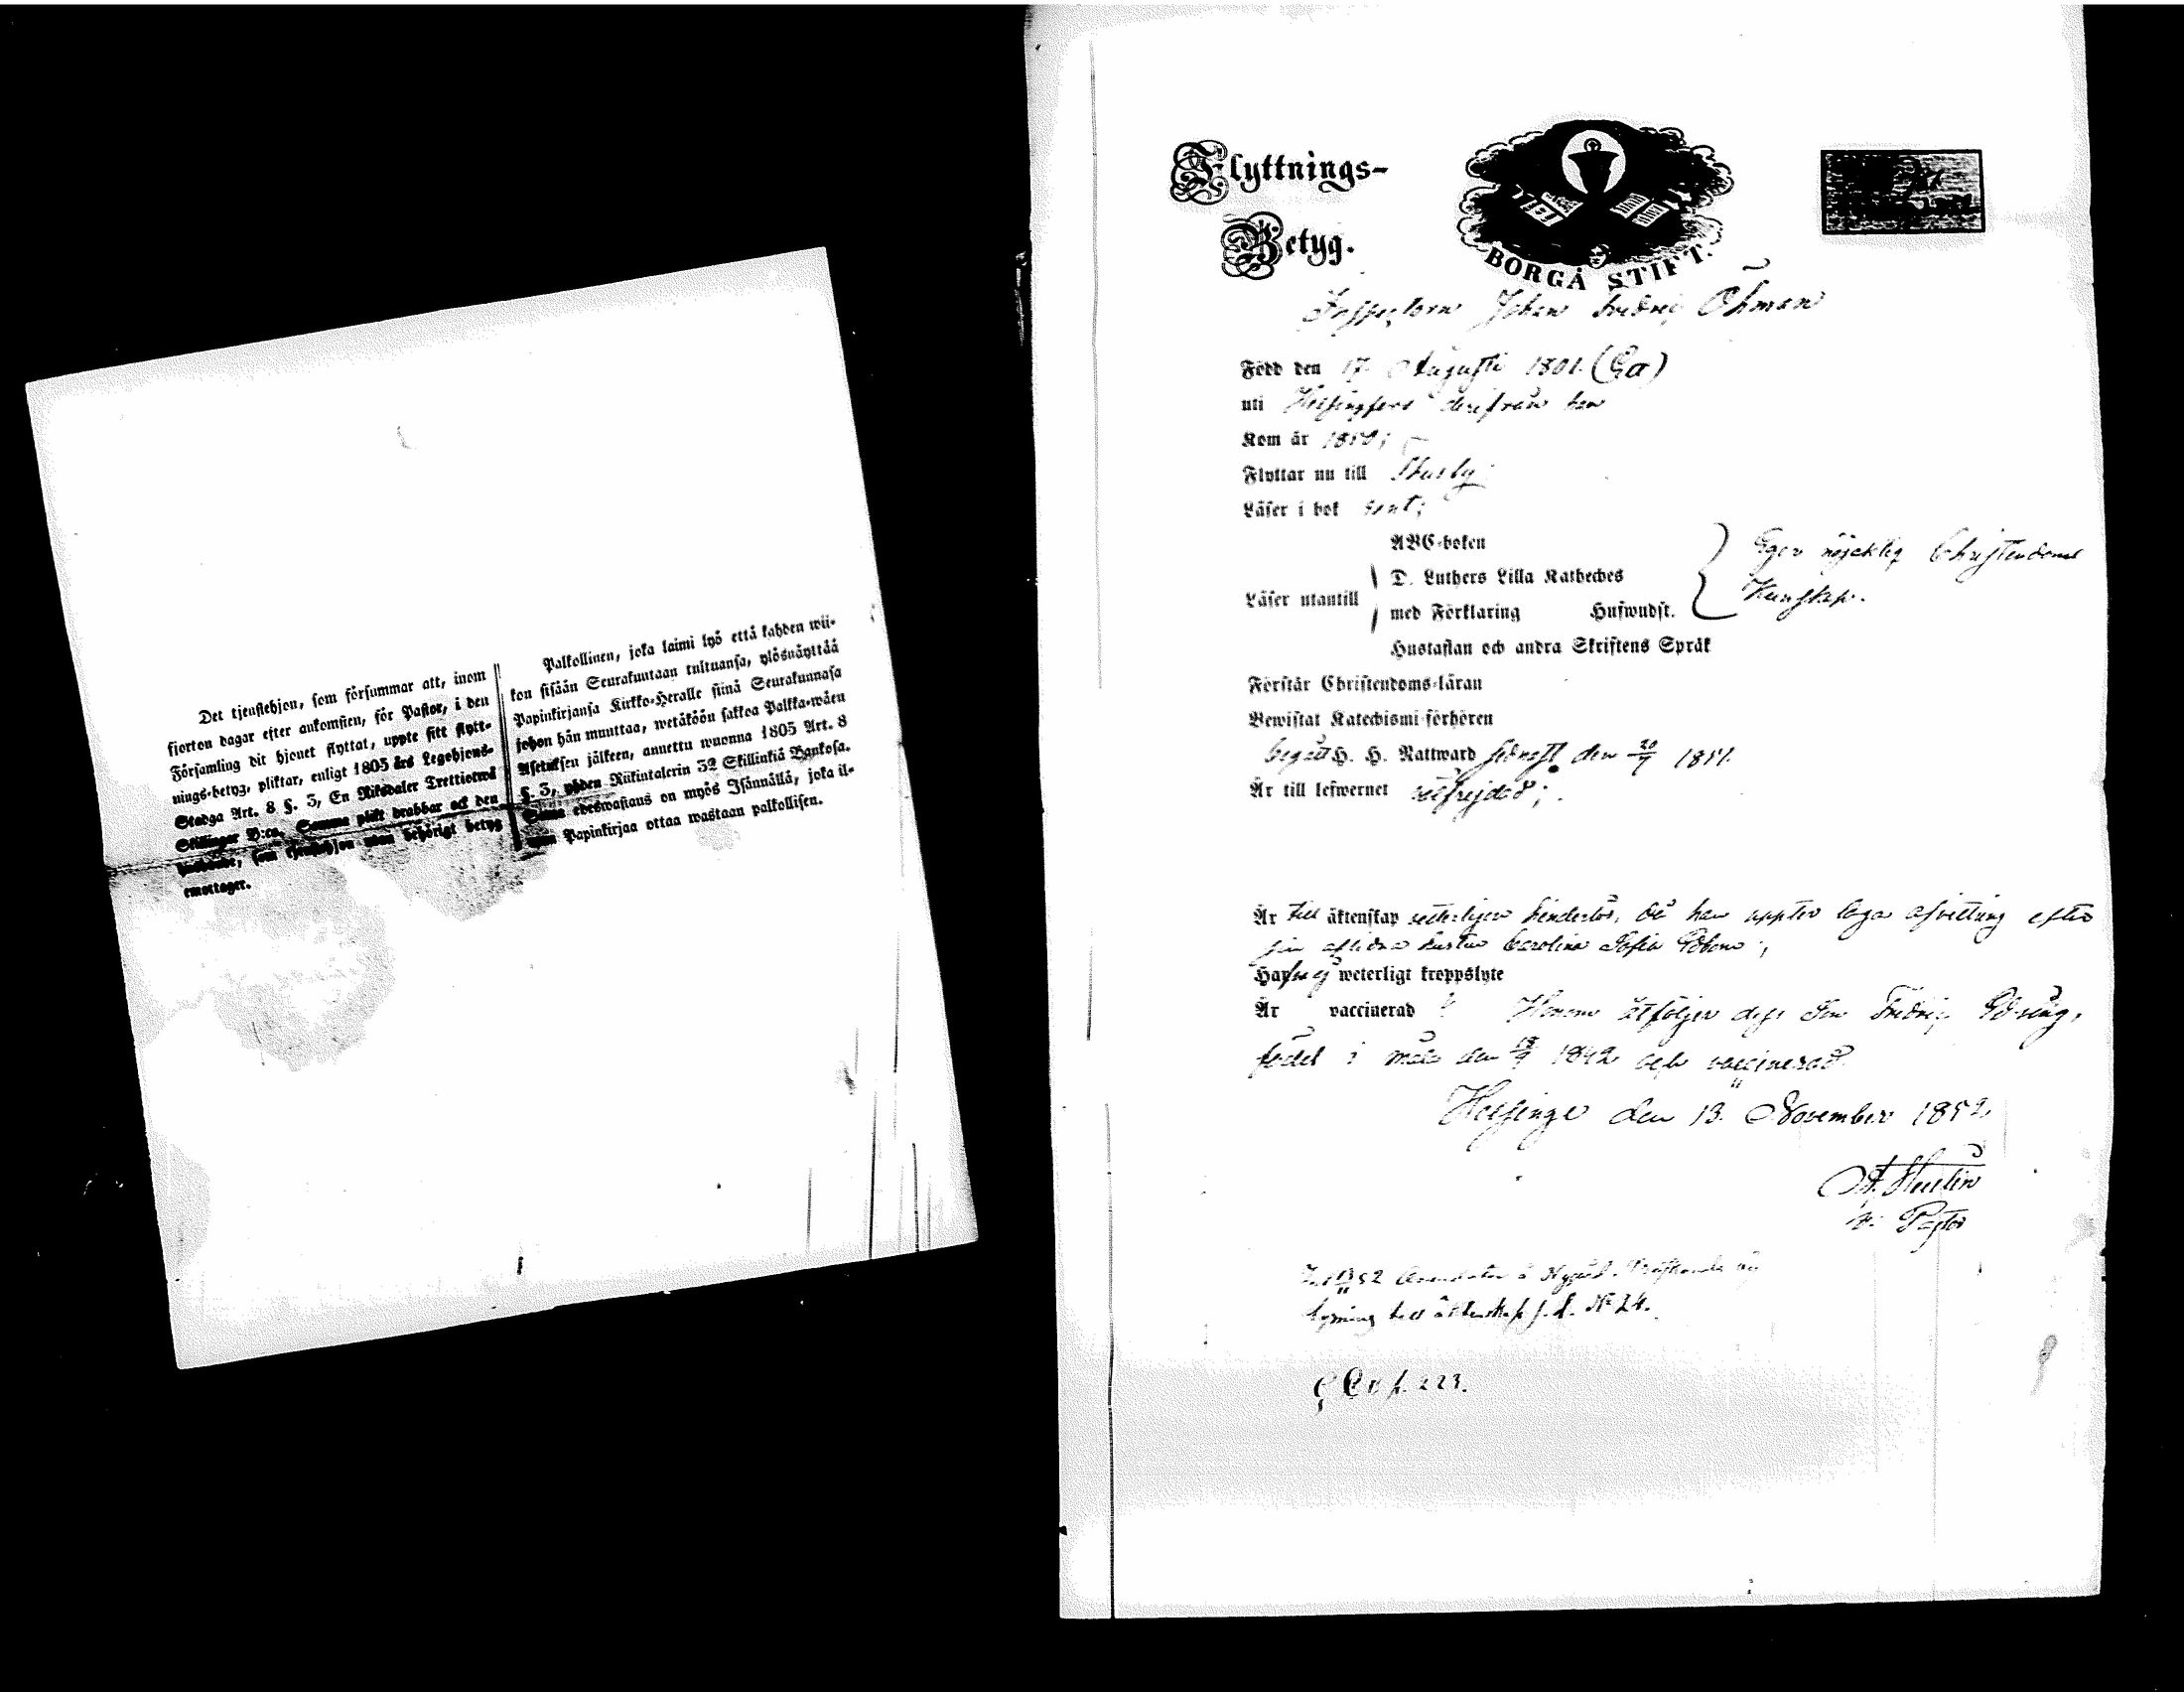 Det tjenstehjon, som försummar att, inom
fjorton dagar efter ankomsten, för Pastor, i den
Församling dit hjonet flyttat, uppte sitt flytt-
nings-betyg, pliktar, enligt 1805 års Legohjons-
Stadga Art. 8 §. 3, En Riksdaler Trettiotwå
Skillingar B:co. Samma plikt drabbar ock den
husbonde, som tjenstehjon utan behörigt betyg
emottager.
Palkollinen, joka laimi lyö että kahden wii-
kon sisään Seurakuntaan tultuansa, ylösnäyttää
Papinkirjansa Kirkko-Heralle siinä Seurakunnasa
johon hän muuttaa, wetäköön sakkoa Palkka-wäen
Asetuksen jälkeen, annettu wuonna 1805 Art. 8
§. 3, yhden Riikintalerin 32 Skillinkiä Bankosa.
Sama edeswastaus on myös Isännällä, joka il-
man Papinkirjaa ottaa wastaan palkollisen.
Flyttnings-
Betyg.
BORGÅ STIFT.
Inspectorn Johan Fredric Öhman
Född den 17 Augusti 1801.
uti Helsingfors derifrån han
Kom år
Flyttar nu till Thusby
Läser i bok rent;
ABC-boken
D. Luthers Lilla Kateches
Läser utantill
med Förklaring Hufwudst.
Hustaflan och andra Skriftens Språk
Eger nöjaktig Christendoms
Kunskap.
Förstår Christendoms-läran
Bewistat Katechismi-förhören
begått H. H. Nattward sednast den 20/7
Är till lefwernet oförvitelig;
Är till äktenskap hinderlös, då han upptes laga afvittring efter
sin aflidna hustru Carolina Sofia
Hafver ej weterligt kroppslyte
Är vaccinerad Honom åtföljer dess Son Fredric
född i den 1842 och vaccinerad.
Helsinge den 13. November 1852.
v. Pastor
lysning till äktenskap s. d. No 24.
p. 223.